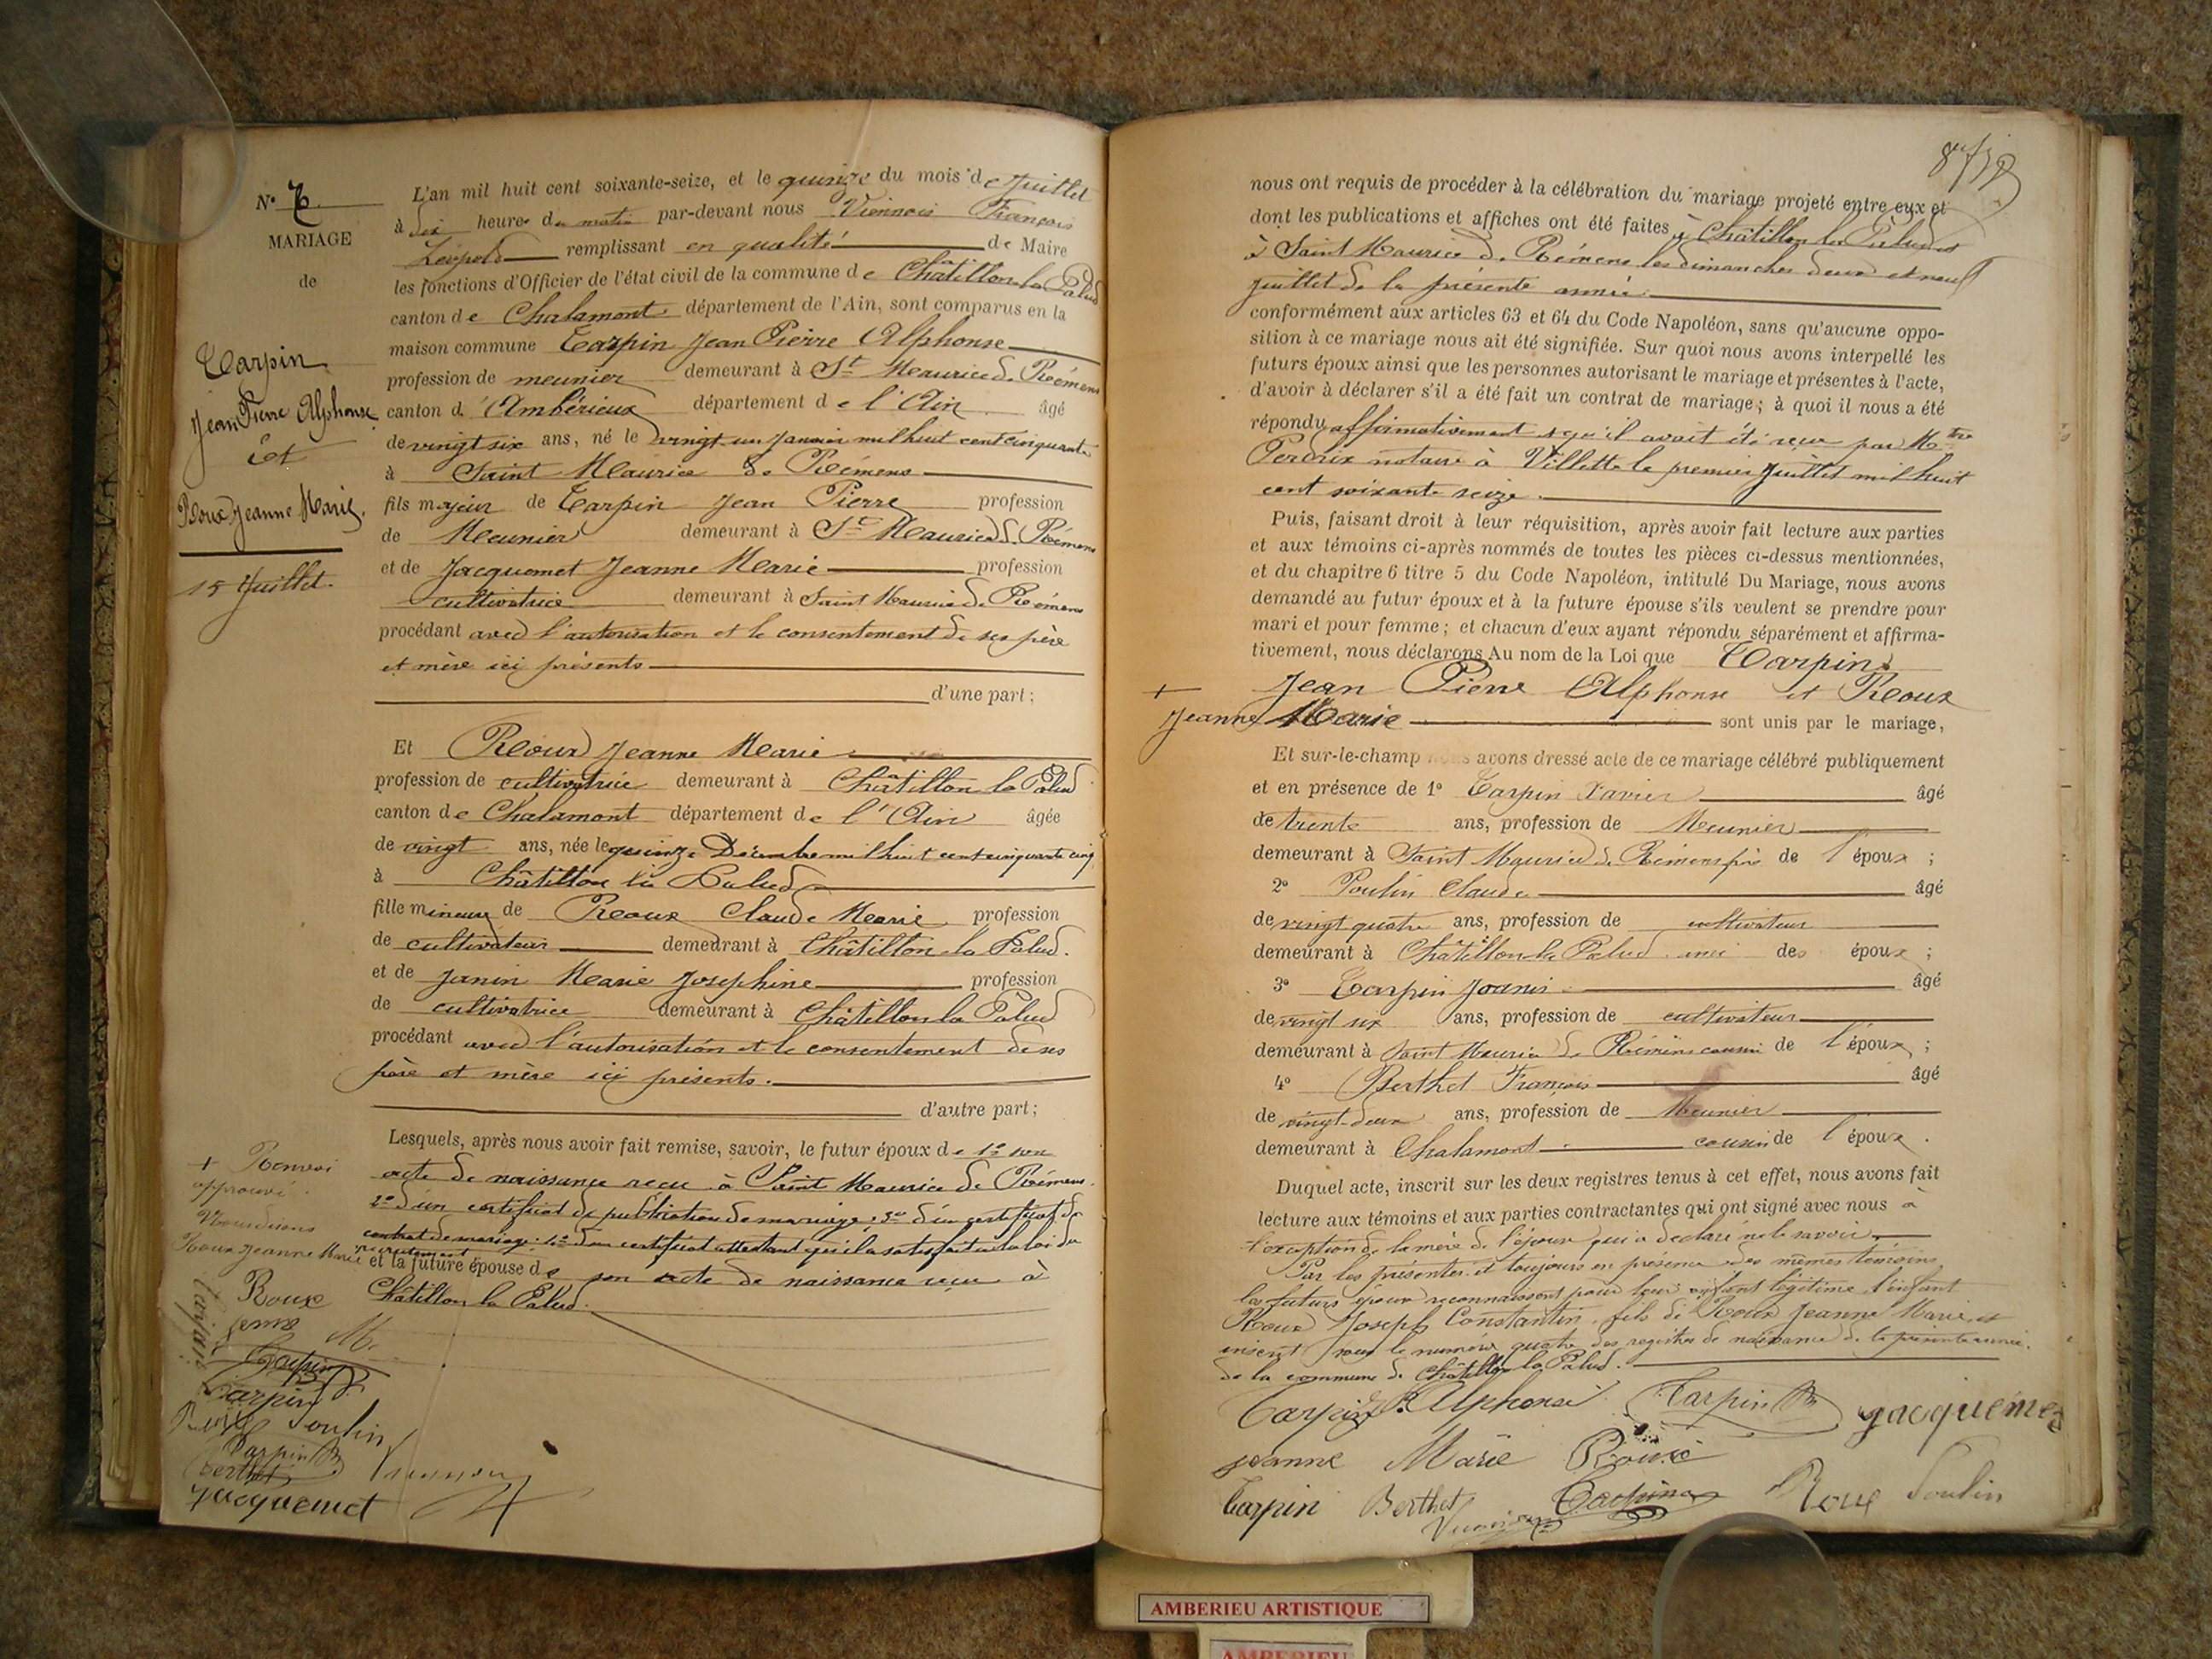 N° 7
MARIAGE
de
Carpin
Jean Pierre Alphonse
Et
Roux Jeanne Marie.
15 Juillet.
L'an mil huit cent soixante-seize, et le quinze du mois de Juillet
à dix heures du matin par-devant nous Viennois François
Léopold remplissant en qualité de Maire
les fonctions d'Officier de l'état civil de la commune de Châtillon la Palud
canton de Chalamont département de l'Ain, sont comparus en la
maison commune Carpin Jean Pierre Alphonse
profession de meunier demeurant à St Maurice de Rémens
canton d'Ambérieux département de l'Ain âgé
de vingt six ans, né le vingt un Janvier mil huit cent cinquante
à Saint Maurice de Rémens
fils majeur de Carpin Jean Pierre profession
de Meunier demeurant à St Maurice de Rémens
et de Jacquemet Jeanne Marie profession
cultivatrice demeurant à Saint Maurice de Rémens
procédant avec l'autorisation et le consentement de ses père
et mère ici présents
d'une part;
Et Roux Jeanne Marie
profession de cultivatrice demeurant à Châtillon la Palud
canton de Chalamont département de l'Ain âgée
de vingt ans, née le quinze Décembre mil huit cent cinquante cinq
à Châtillon la Palud
fille mineure de Roux Claude Marie profession
de cultivateur demeurant à Châtillon la Palud.
et de Janin Marie Josephine profession
de cultivatrice demeurant à Châtillon la Palud
procédant avec l'autorisation et le consentement de ses
père et mère ici présents.
d'autre part;
Lesquels, après nous avoir fait remise, savoir, le futur époux de 1° son
acte de naissance reçu à Saint Maurice de Rémens.
2° d'un certificat de publication de mariage; 3° d'un certificat de
contrat de mariage. 4° d'un certificat attestant qu'il a satisfait à la loi du
recrutement
et la future épouse de son acte de naissance reçu à
Châtillon la Palud.
+ Renvoi
approuvé.
Nous disons
Roux Jeanne Marie
Roux
M.
Carpin
Carpin
Roux Poulin
Carpin
Berthet
Jacquemet
nous ont requis de procéder à la célébration du mariage projeté entre eux et
dont les publications et affiches ont été faites à Châtillon la Palud et
à Saint Maurice de Rémens les dimanches deux et neuf
juillet de la présente année
conformément aux articles 63 et 64 du Code Napoléon, sans qu'aucune oppo-
sition à ce mariage nous ait été signifiée. Sur quoi nous avons interpellé les
futurs époux ainsi que les personnes autorisant le mariage et présentes à l'acte,
d'avoir à déclarer s'il a été fait un contrat de mariage; à quoi il nous a été
répondu affirmativement & qu'il avait été reçu par Mtre
Perdrix notaire à Villette le premier Juillet mil huit
cent soixante seize.
Puis, faisant droit à leur réquisition, après avoir fait lecture aux parties
et aux témoins ci-après nommés de toutes les pièces ci-dessus mentionnées,
et du chapitre 6 titre 5 du Code Napoléon, intitulé Du Mariage, nous avons
demandé au futur époux et à la future épouse s'ils veulent se prendre pour
mari et pour femme; et chacun d'eux ayant répondu séparément et affirma-
tivement, nous déclarons Au nom de la Loi que Carpin
+ Jean Pierre Alphonse et Roux
Jeanne Marie sont unis par le mariage,
Et sur-le-champ nous avons dressé acte de ce mariage célébré publiquement
et en présence de 1° Carpin Xavier âgé
de trente ans, profession de Meunier
demeurant à Saint Maurice de Rémens de l'époux;
2° Poulin Claude âgé
de vingt quatre ans, profession de cultivateur
demeurant à Châtillon la Palud ami des époux;
3° Carpin Joanis âgé
de vingt six ans, profession de cultivateur
demeurant à Saint Maurice de Rémens cousin de l'époux;
4° Berthet François âgé
de vingt-deux ans, profession de Meunier
demeurant à Chalamont cousin de l'époux.
Duquel acte, inscrit sur les deux registres tenus à cet effet, nous avons fait
lecture aux témoins et aux parties contractantes qui ont signé avec nous à
l'exception de la mère de l'épouse qui a déclaré ne le savoir.
Par les présentes et toujours en présence des mêmes témoins
les futurs époux reconnaissent pour leur enfant légitime l'enfant
Roux Joseph Constantin, fils de Roux Jeanne Marie, et
inscrit sous le numéro quatre des registres de naissance de la présente année.
de la commune de Châtillon la Palud.
Carpin Alphonse Carpin Jacquemet
jeanne Marie Roux
Carpin Berthet Carpin Roux Poulin
AMBERIEU ARTISTIQUE
AMBERIEU